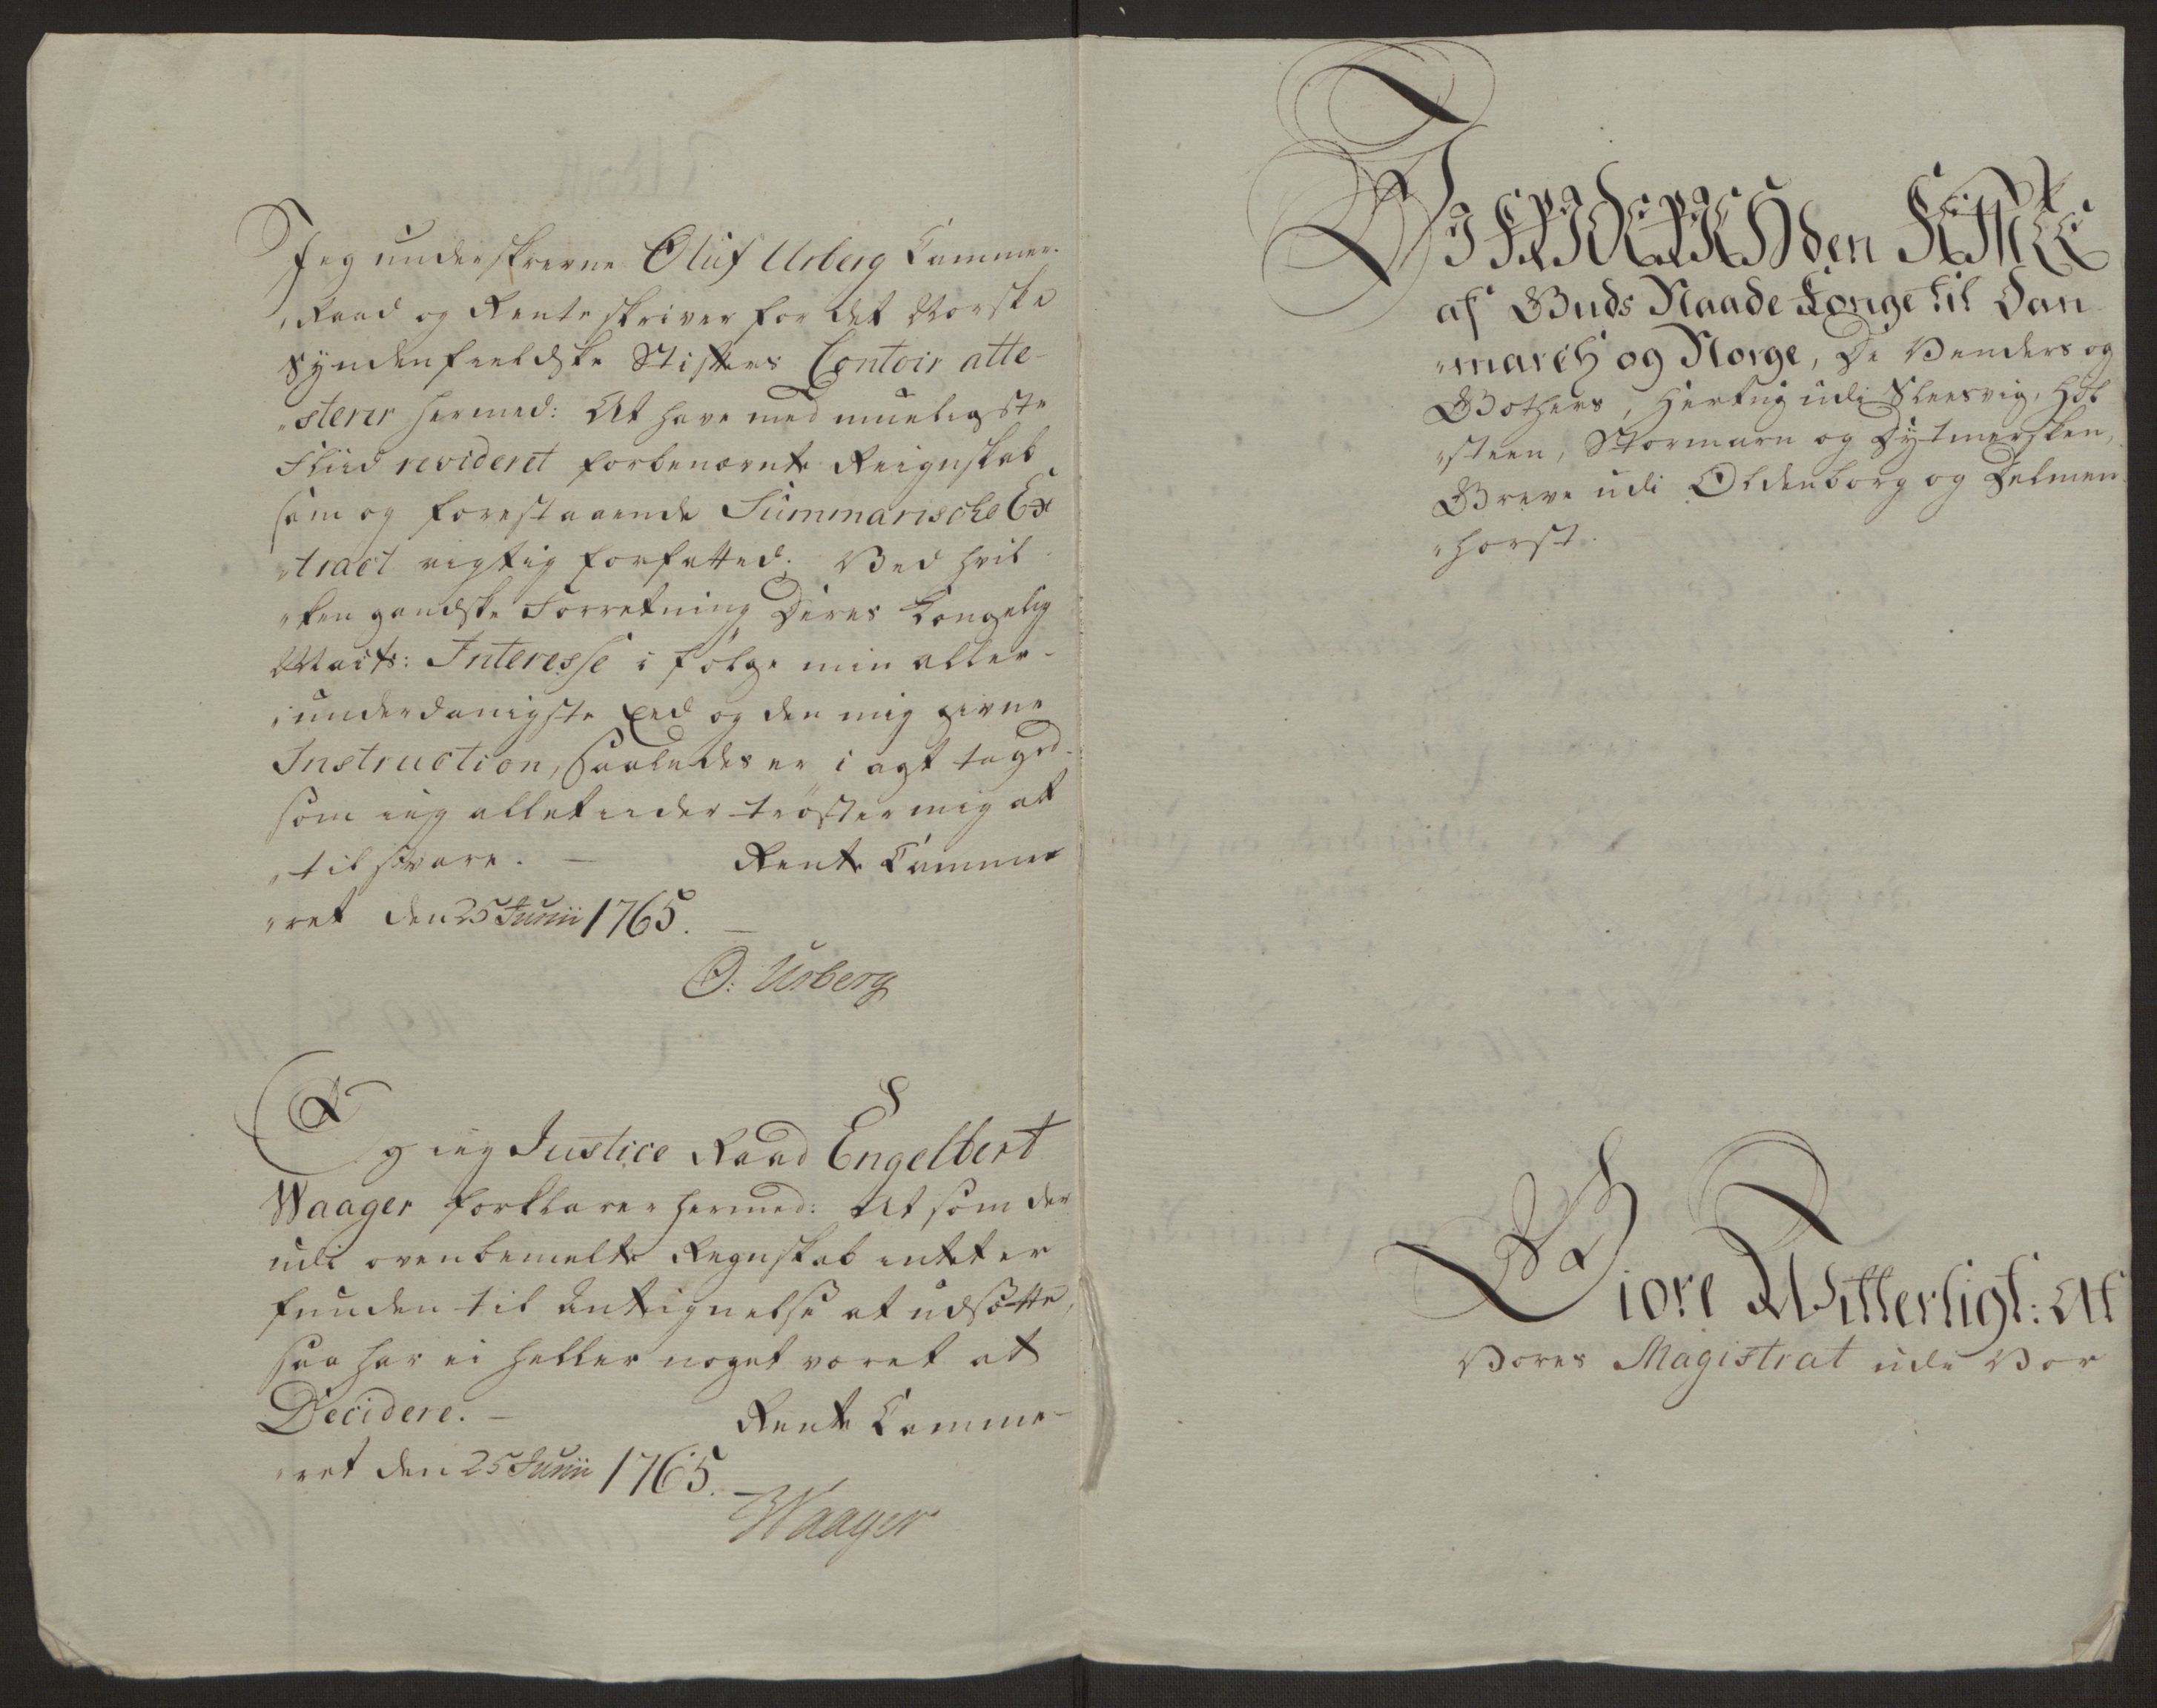 Jeg underskrevne Oluf Urberg Cammer-
„Raad og Renteskriver for det Norske
Syndenfieldske Stifters Contoir atte-
„sterer hermed: At have med mueligste
Fliid revideret forbenævnte Reignskab
som og forestaaende Summarische Ex
„tract rigtig forfatted. Ved hvil
„ken gandske Forretning Deres Kongelig
Maits: Interesse i følge min aller-
„underdanigste Eed og den mig givne
Instruction, saaledes er i agt taged
som ieg alletiider trøster mig at
„til svare. — Rente Camme
„ret den 25 Junii 1765. —
O: Urberg
Og ieg Justice Raad Engelbert
Waager forklarer hermed: At som der
udi ovenbemelte Regnskab intet er
funden til Antegnelse at udsætte,
saa har ei heller noget været at
Decidere. — Rente Camme-
„ret den 25 Junii 1765. —
Waager
Wi FRIDERICH den FEMTE
af Guds Naade Konge til Dan
„march og Norge, De Venders og
Gothers, Hertug udi Slesvig, Hol
„steen, Stormarn og Dytmersken,
Greve udi Oldenborg og Delmen
„horst.
Giøre Witterligt: At
Vores Magistrat udi Vor